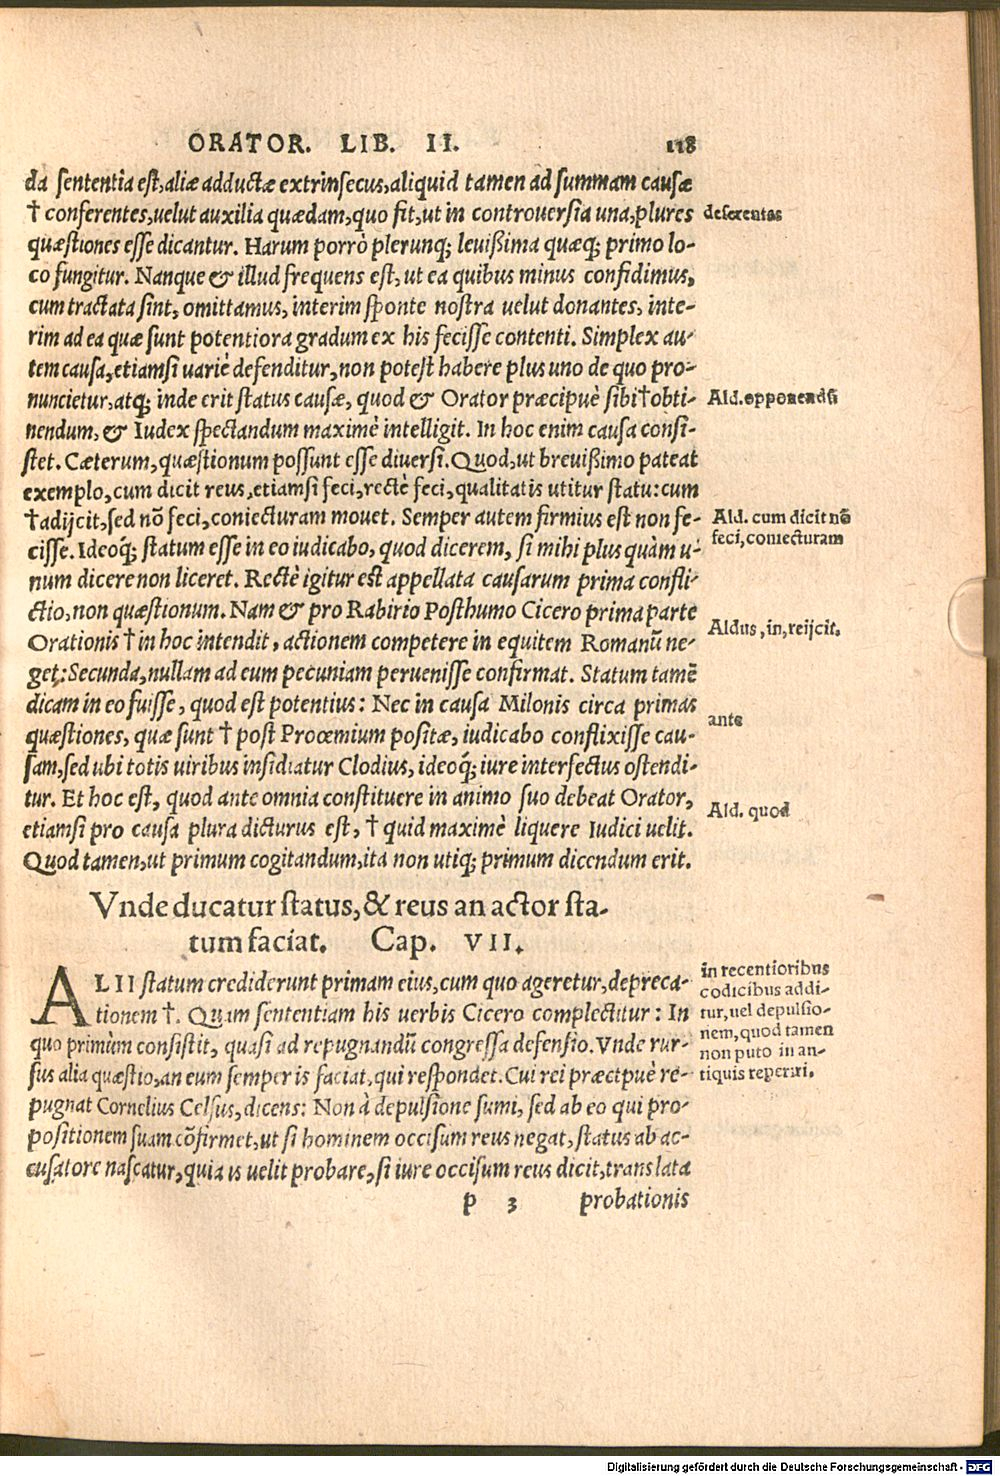 ORATOR. LIB. II. 118
da sententia est, aliæ adductæ extrinsecus, aliquid tamen ad summam causæ
† conferentes, velut auxilia quædam, quo fit, ut in controuersia una, plures
deferentes
quæstiones esse dicantur. Harum porrò plerunq; leuißima quæq; primo lo-
co fungitur. Nanque & illud frequens est, ut ea quibus minus confidimus,
cum tractata sint, omittamus, interim sponte nostra uelut donantes, inte-
rim ad ea quæ sunt potentiora gradum ex his fecisse contenti. Simplex au-
tem causa, etiamsi variè defenditur, non potest habere plus uno de quo pro-
nuncietur, atq; inde erit status causæ, quod & Orator præcipuè sibi † obti-
Ald. opponendū
nendum, & Iudex spectandum maximè intelligit. In hoc enim causa consi-
stet. Cæterum, quæstionum possunt esse diuersi. Quod, ut breuißimo pateat
exemplo, cum dicit reus, etiamsi feci, rectè feci, qualitatis utitur statu: cum
† adijcit, sed nō feci, coniecturam mouet. Semper autem firmius est non fe-
Ald. cum dicit nō
feci, coniecturam
cisse. Ideoq; statum esse in eo iudicabo, quod dicerem, si mihi plus quàm u-
num dicere non liceret. Rectè igitur est appellata causarum prima confli-
ctio, non quæstionum. Nam & pro Rabirio Posthumo Cicero prima parte
Orationis † in hoc intendit, actionem competere in equitem Romanū ne-
Aldus, in, reijcit.
get: Secunda, nullam ad eum pecuniam peruenisse confirmat. Statum tamē
dicam in eo fuisse, quod est potentius: Nec in causa Milonis circa primas
quæstiones, quæ sunt † post Prooemium positæ, iudicabo conflixisse cau-
ante
sam, sed ubi totis uiribus insidiatur Clodius, ideoq; iure interfectus ostendi-
tur. Et hoc est, quod ante omnia constituere in animo suo debeat Orator,
etiamsi pro causa plura dicturus est, † quid maximè liquere Iudici uelit.
Ald. quod
Quod tamen, ut primum cogitandum, ita non utiq; primum dicendum erit.
Vnde ducatur status, & reus an actor sta-
tum faciat. Cap. VII.
ALII statum crediderunt primam eius, cum quo ageretur, depreca-
tionem †. Quam sententiam his uerbis Cicero complectitur: In
quo primùm consistit, quasi ad repugnandū congressa defensio. Vnde rur-
sus alia quæstio, an eum semper is faciat, qui respondet. Cui rei præcipuè re-
pugnat Cornelius Celsus, dicens: Non à depulsione sumi, sed ab eo qui pro-
positionem suam cōfirmet, ut si hominem occisum reus negat, status ab ac-
cusatore nascatur, quia is uelit probare, si iure occisum reus dicit, translata
in recentioribus
codicibus addi-
tur, uel depulsio-
nem, quod tamen
non puto in an-
tiquis reperiri.
p 3 probationis
Digitalisierung gefördert durch die Deutsche Forschungsgemeinschaft - DFG